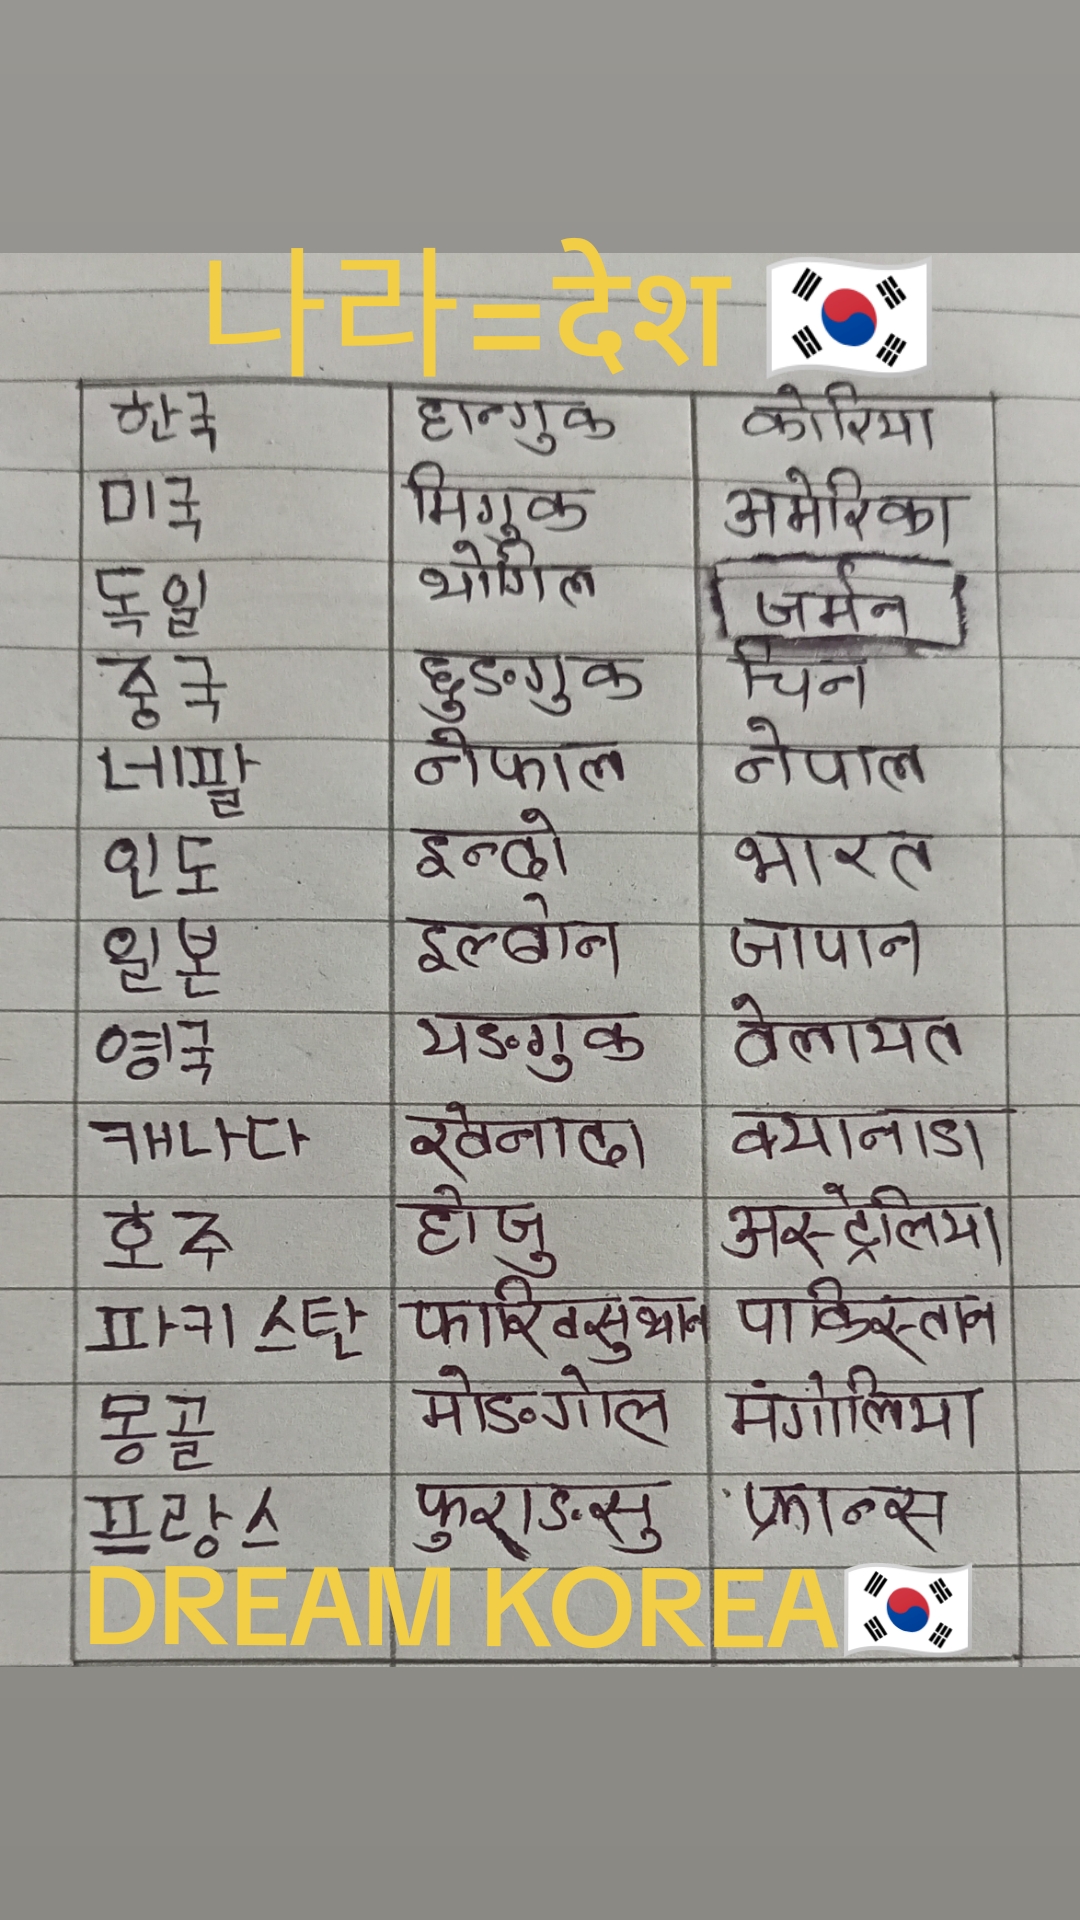 나라=देश
한국 हान्गुक कोरिया
미국 मिगुक अमेरिका
독일 थोगिल जर्मन
중국 छुङगुक चिन
네팔 नेफाल नेपाल
인도 इन्दो भारत
일본 इल्बोन जापान
영국 यङगुक वेलायत
캐나다 खेनादा क्यानाडा
호주 होजु अस्ट्रेलिया
파키스탄 फाखिसुथान पाकिस्तान
몽골 मोङगोल मंगोलिया
프랑스 फुराङसु फ्रान्स
DREAM KOREA